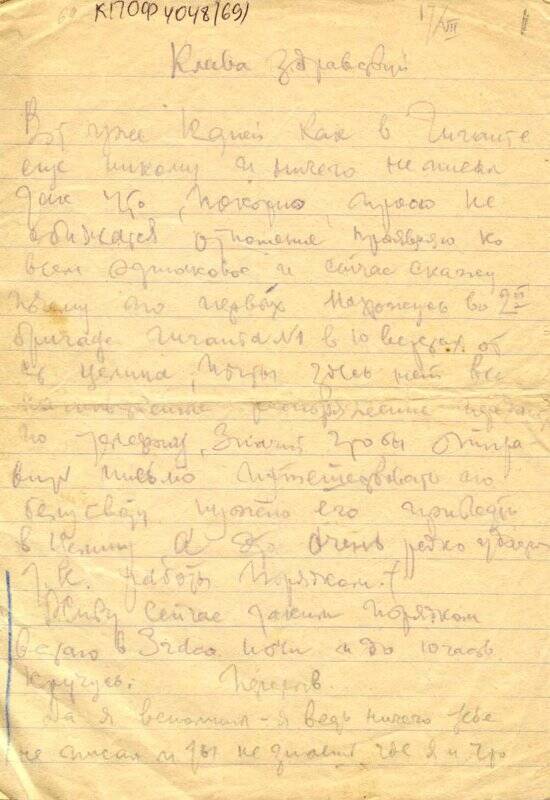 КПОФ 4048/69/
17/VII
Клава здравствуй
Вот уже дней как в Гиганте
еще никому и ничего не писал
так что, покорно, прошу не
обижаться отношение проявляю ко
всем одинаковое и сейчас скажу
почему во первых нахожусь во 2й
бригаде Гиганта №1 в 10 верстах от
ст целина, почты здесь нет все
распоряжение
по телефону, Значит чтобы отпра
вить письмо путешествовать по
белу свету нужно его привезти
в Целину а это очень редко
т.к. работы порядком.
Живу сейчас таким порядком
встаю в 3 часа ночи и до 10 часов
кручусь. Перерыв.
Да я вспомнил - я ведь ничего тебе
не писал и ты не знаешь где я и что